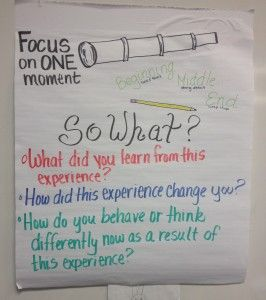 Focus
on ONE
moment
Beginning
Middle
End
So What?
• What did you learn from this
experience?
• How did this experience change you?
• How do you behave or think
differently now as a result of
this experience?